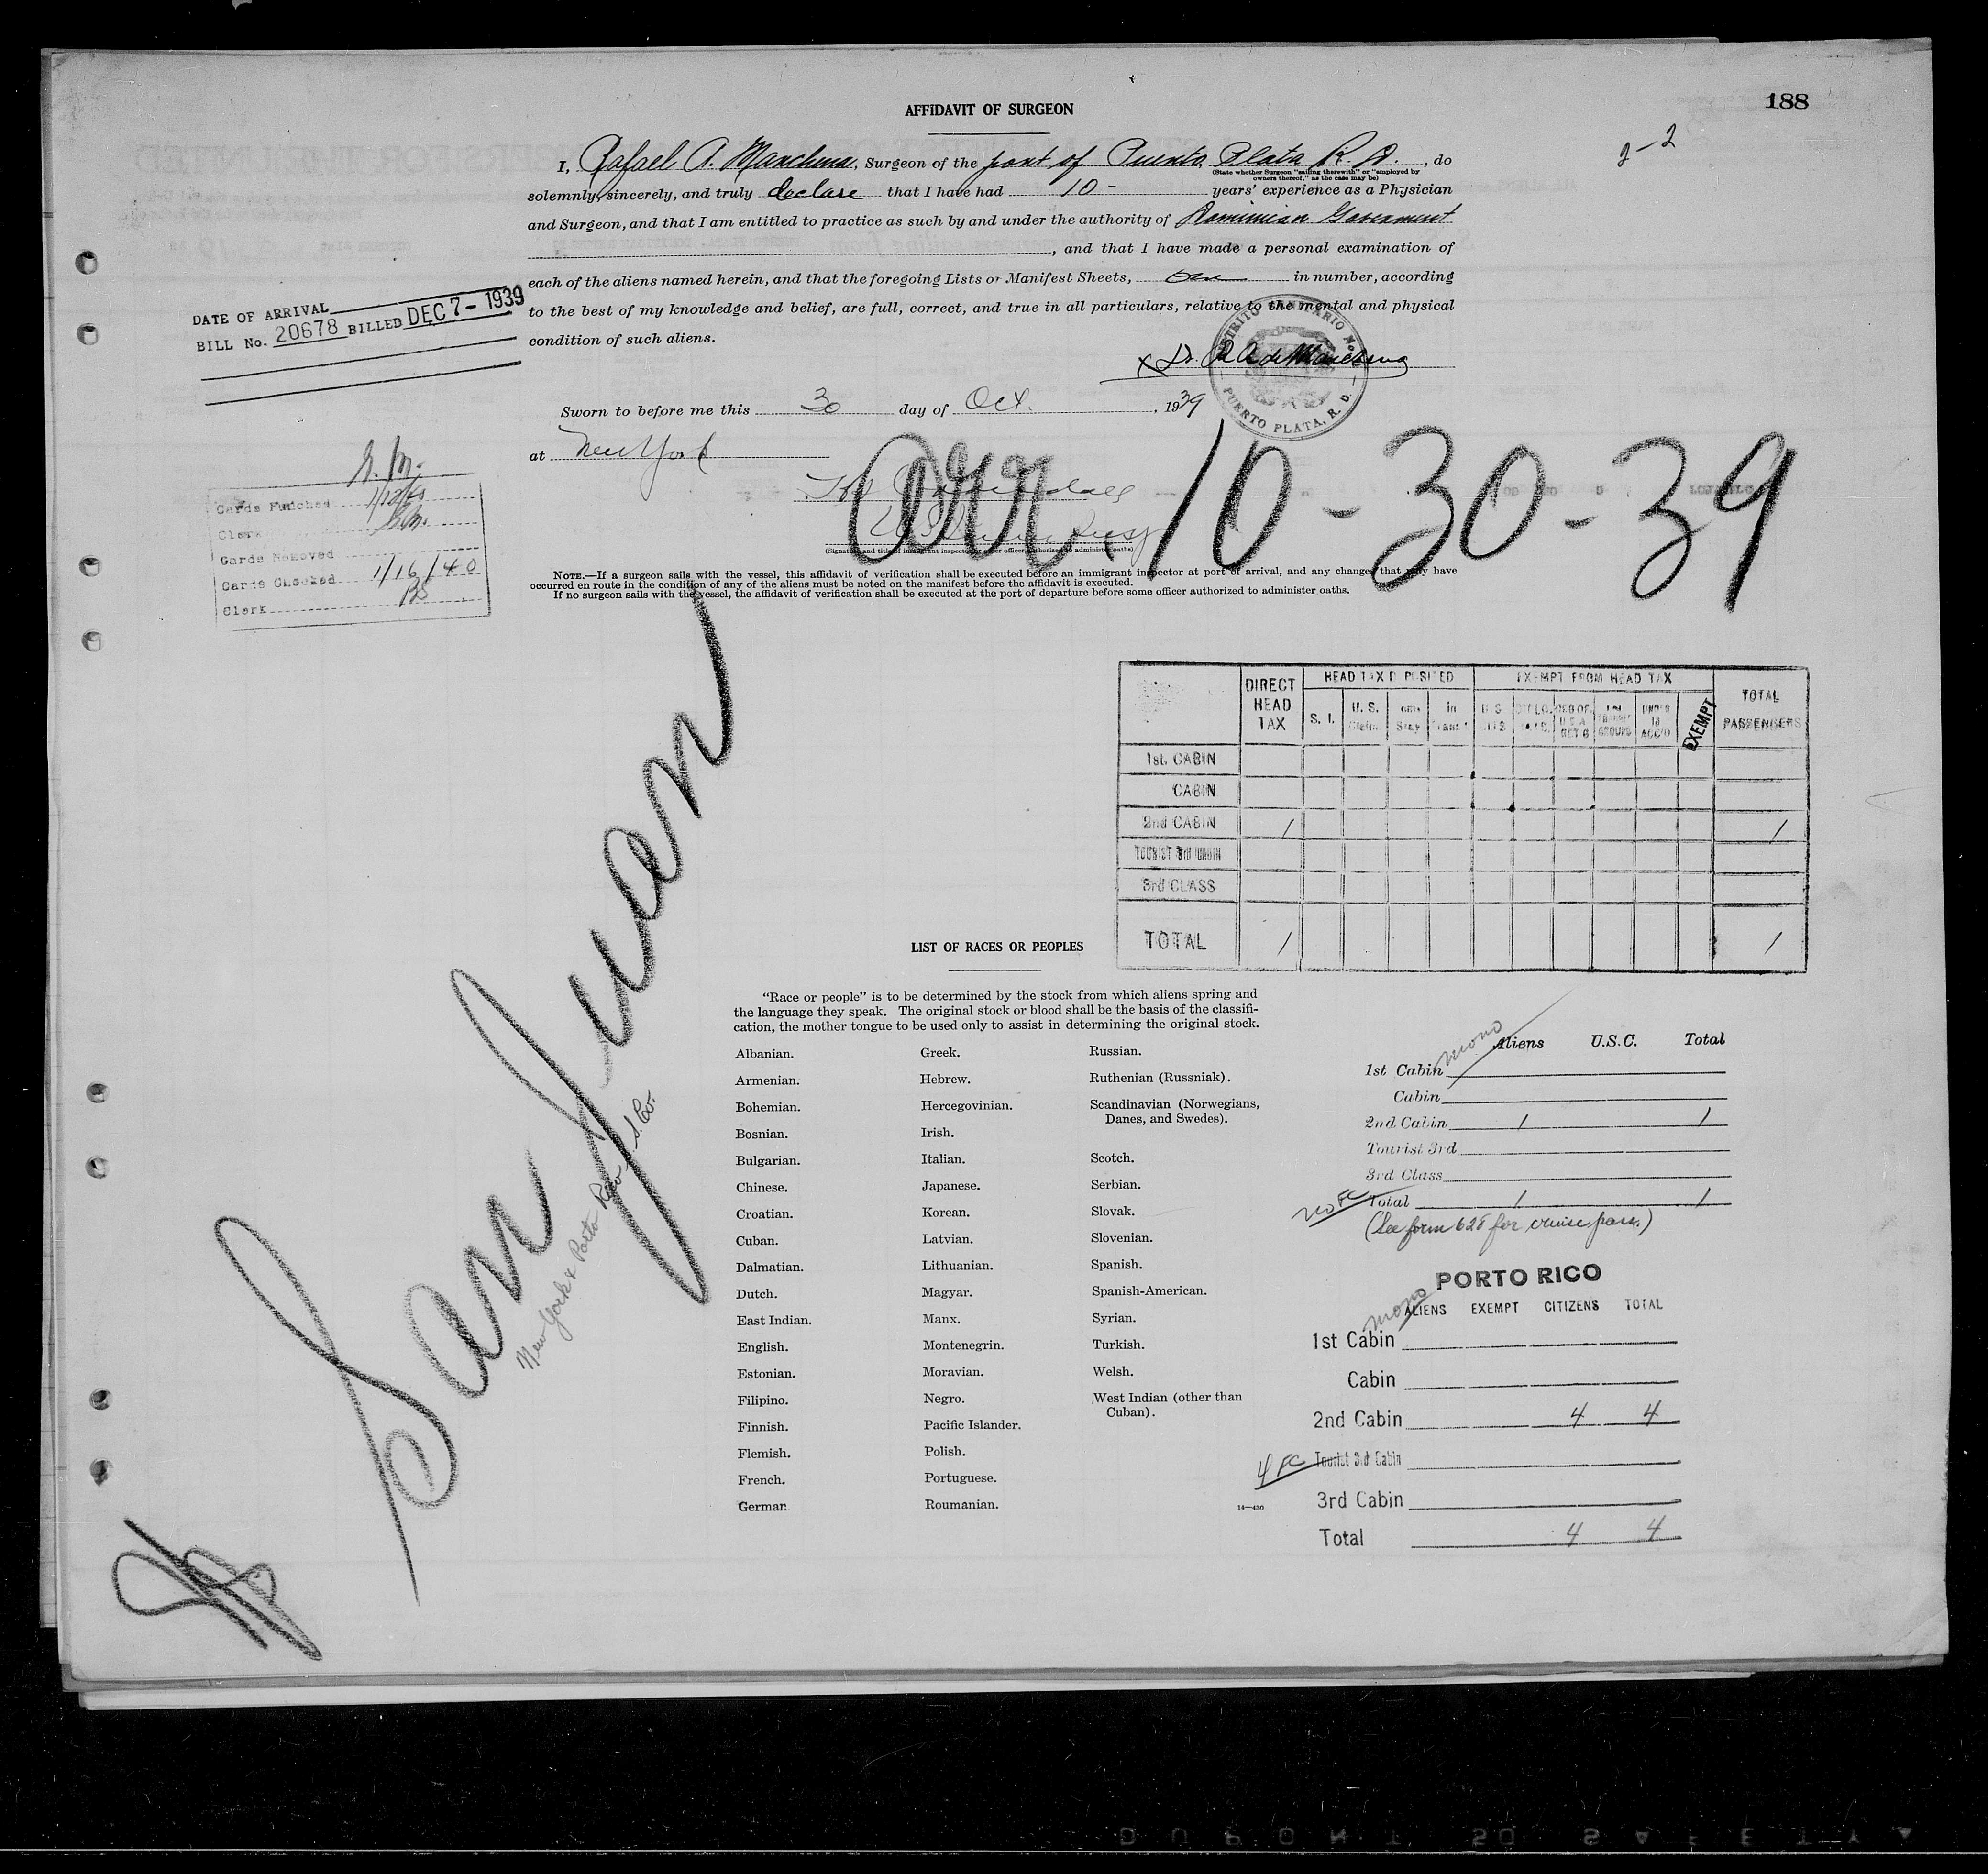 188
2-2
AFFIDAVIT OF SURGEON
I, Rafael A. Marchena, Surgeon of the port of Puerto Plata R. D., do
(State whether Surgeon "sailing therewith" or "employed by owners thereof," as the case may be)
solemnly, sincerely, and truly declare that I have had 10- years' experience as a Physician
and Surgeon, and that I am entitled to practice as such by and under the authority of Dominican Government
, and that I have made a personal examination of
each of the aliens named herein, and that the foregoing Lists or Manifest Sheets, one in number, according
to the best of my knowledge and belief, are full, correct, and true in all particulars, relative to the mental and physical
condition of such aliens.
DATE OF ARRIVAL
BILL No. 20678 BILLED DEC 7- 1939
x Dr. R A de Marchena
DISTRITO SANITARIO No.
PUERTO PLATA, R. D.
Sworn to before me this 30 day of Oct., 1939
at New York
Arr. 10-30-39
(Signature and title of immigrant inspector or other officer authorized to administer oaths)
G. M.
Cards Punched 1/12/40
Clerk G.M.
Cards Removed
Cards Checked 1/16/40
Clerk
NOTE.—If a surgeon sails with the vessel, this affidavit of verification shall be executed before an immigrant inspector at port of arrival, and any changes that may have
occurred en route in the condition of any of the aliens must be noted on the manifest before the affidavit is executed.
If no surgeon sails with the vessel, the affidavit of verification shall be executed at the port of departure before some officer authorized to administer oaths.
San Juan
New York & Porto Rico S.S. Co.
DIRECT HEAD TAX
HEAD TAX DEPOSITED
EXEMPT FROM HEAD TAX
TOTAL PASSENGERS
S. I.
U. S. Claim
Stay
in Trans't
EXEMPT
1st. CABIN
CABIN
2nd CABIN 1 1
TOURIST 3rd CABIN
3rd CLASS
TOTAL 1 1
LIST OF RACES OR PEOPLES
"Race or people" is to be determined by the stock from which aliens spring and
the language they speak. The original stock or blood shall be the basis of the classifi-
cation, the mother tongue to be used only to assist in determining the original stock.
Albanian.
Armenian.
Bohemian.
Bosnian.
Bulgarian.
Chinese.
Croatian.
Cuban.
Dalmatian.
Dutch.
East Indian.
English.
Estonian.
Filipino.
Finnish.
Flemish.
French.
German
Greek.
Hebrew.
Hercegovinian.
Irish.
Italian.
Japanese.
Korean.
Latvian.
Lithuanian.
Magyar.
Manx.
Montenegrin.
Moravian.
Negro.
Pacific Islander.
Polish.
Portuguese.
Roumanian.
Russian.
Ruthenian (Russniak).
Scandinavian (Norwegians,
Danes, and Swedes).
Scotch.
Serbian.
Slovak.
Slovenian.
Spanish.
Spanish-American.
Syrian.
Turkish.
Welsh.
West Indian (other than
Cuban).
14—430
mono
Aliens U.S.C. Total
1st Cabin
Cabin
2nd Cabin 1 1
Tourist 3rd
3rd Class
no FC Total 1 1
(See form 628 for cruise pass.)
PORTO RICO
mono
ALIENS EXEMPT CITIZENS TOTAL
1st Cabin
Cabin
2nd Cabin 4 4
4 FC Tourist 3rd Cabin
3rd Cabin
Total 4 4
DUPONT 50 SAFETY